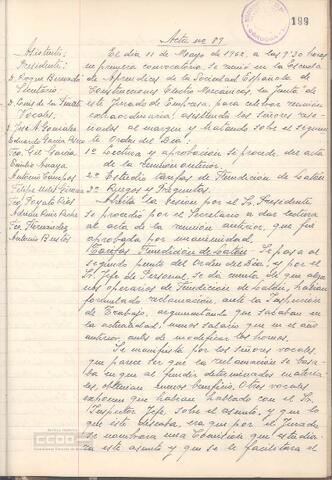 199
Acta no 83
Asistentes
Presidente:
D. Roque Bernadi
Secretario
D. Louis de la
Vocales.
José A. González
Eduardo García
Fco. José García
Emilio Amaya
Antonio Campos
Felipe
Fco. Poyato Rios
Adrián Ruiz
Fco. Hernandez
Antonio Bustos
El dia 11 de Mayo de 1962, a las 9'30 horas
en primera convocatoria, se reunió en la Escuela
de Aprendices de la Sociedad Española de
Construcciones Electro Mecánicas, la Junta de
este Jurado de Empresa, para celebrar reunión
extraordinaria, asistiendo los señores rese-
ñados al margen y tratando sobre el siguien-
te Orden del Dia:
1º Lectura y aprobación si procede, del acta
de la reunión anterior.
2º Estudio Tarifas de Fundición de Latón
3º Ruegos y Preguntas.
Abierta la sesión por el Sr. Presidente
se procedió por el Secretario a dar lectura
al acta de la reunión anterior, que fué
aprobada por unanimidad.
Tarifas Fundición de Latón. Se pasa al
segundo punto del Orden del Dia, y por el
Sr. Jefe de Personal, se da cuenta de que algu-
nos operarios de Fundición de Latón, habian
formulado reclamación, ante la Inspección
de Trabajo, argumentando que sacaban en
la actualidad, menos salario que en el año
anterior, antes de modificar los hornos.
Se manifiesta por los señores vocales,
que parece ser que la reclamación se basa-
ba en que al fundir determinados materia-
les, obtenian menos beneficio. Otros vocales
exponen que habian hablado con el Sr.
Inspector Jefe, sobre el asunto, y que lo
que este deseaba, era que por el Jurado
se nombrara una Comisión que estudia-
ra este asunto y que se le facilitara el
CCOO